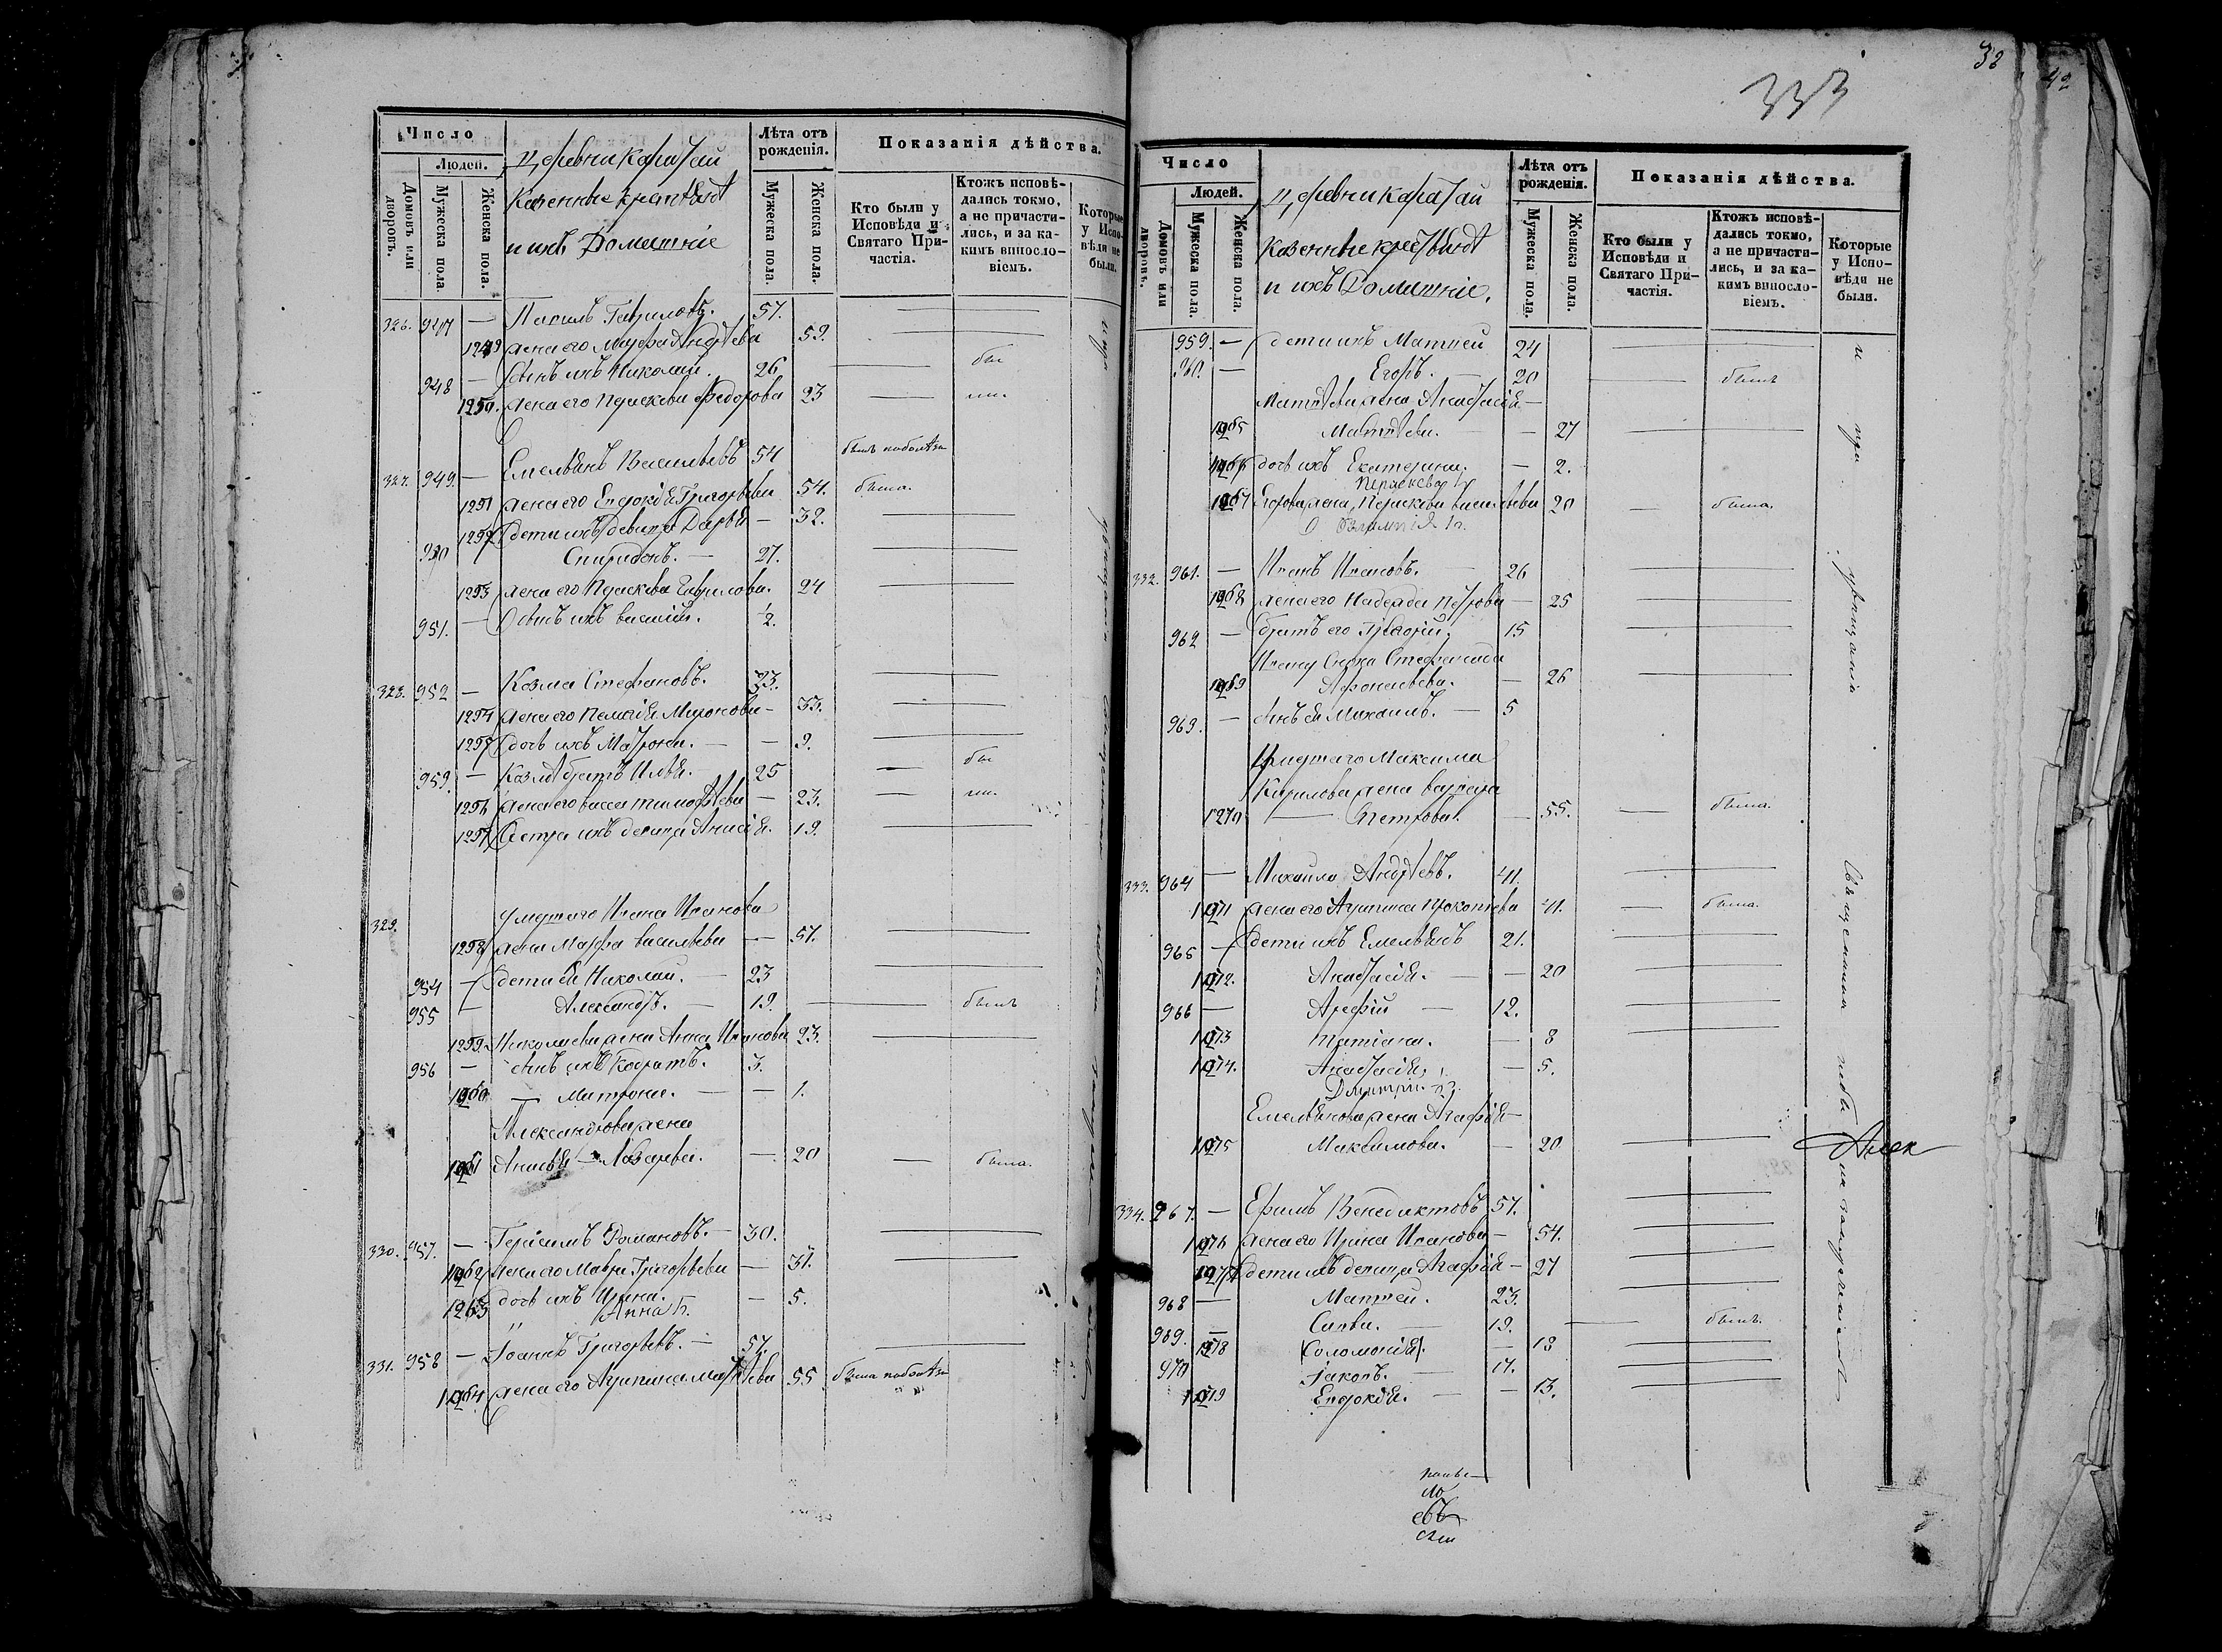 Число
Людей.
Домовъ или дворовъ.
Мужеска пола.
Женска пола.
Деревни Каратай
Казенные крестьяне
и ихъ Домашніе
Лѣта отъ рожденія.
Мужеска пола.
Женска пола.
Показанія дѣйства.
Кто были у Исповѣди и Святаго Причастія.
Ктожъ исповѣдались токмо, а не причастились, и за какимъ винословіемъ.
Которые у Исповѣди не были.
326. 947 — Гавриловъ. 57.
1249 жена его Марфа Андрѣева 52.
948 — сынъ ихъ Николай. 26
1250. жена его Праскева Федорова 23
327. 949. — Емельянъ Васильевъ 54
1251 жена его Евдокія Григорьева 54. была.
1252 дети ихъ девица Дарья — 32.
950 Спиридонъ. — 27.
1253 жена его Праскева Гаврилова. 24
951. — сынъ ихъ Василій. ½.
328. 952 — Козма Стефановъ. 33.
1254 жена его Пелагія Миронова — 33.
1255 дочь ихъ Матрона. — — 9.
953. — Козмы братъ Илья. 25
1256 жена его Васса Тимофѣева — 23.
1257 сестра ихъ девица Анисія. 19.
329. умершаго Ивана Иванова
1258 жена Марфа Васильева — 57.
954 — дети ея Николай. — 23
955 — Александръ. — 19. былъ
1259. Николаева жена Анна Иванова 23.
956 — сынъ ихъ Кодратъ. 3.
1260 — Матрона. — — 1.
Александрова жена
1261 Анисья — Лазарева. — 20 — была.
330. 957. — Герасимъ Романовъ. — 30.
1262 жена его Мавра Григорьева — 31.
1263 дочь ихъ Ирина. — 5.
Анна
331. 958 — Іоаннъ Григорьевъ. — 57.
1264 жена его Агрипина Матвѣева 55
333
38
42
Число
Людей.
Домовъ или дворовъ.
Мужеска пола.
Женска пола.
Деревни Каратай
Казенные крестьяне
и ихъ Домашніе.
Лѣта отъ рожденія.
Мужеска пола.
Женска пола.
Показанія дѣйства.
Кто были у Исповѣди и Святаго Причастія.
Ктожъ исповѣдались токмо, а не причастились, и за какимъ винословіемъ.
Которые у Исповѣди не были.
959. — дети ихъ Матвей 24
960. — Егоръ. — 20 былъ
Матвѣева жена Анастасія —
1265 Матвѣева. — — 27
1266 дочь ихъ Екатерина. — 2.
1267 Егорова жена Праскева Васильева 20 — была.
332. 961. — Иванъ Ивановъ. 26
1268 жена его Надежда Петрова — 25
962 — братъ его Григорій. 15
Ивану сноха Стефанида
1269 Афонасьева. — 26
963. — сынъ ея Михаилъ. — 5
Умершаго Максима
Кирилова жена Варвара
1270 — Петрова. — 55. — была.
333. 964 — Михаило Андрѣевъ. 41.
1271 жена его Агрипина Прокопьева 41. — была.
965 — дети ихъ Емельянъ 21.
1272. Анастасія. — — 20
966 — Арефій — 12.
1273 Татіана. — 8
1274. Анастасія. — 5.
Емельянова жена Агафія —
1275 Максимова. — 20
Алек
334. 967. — Ефимъ Венедиктовъ 57.
1276 жена его Ирина Иванова — 54.
1277 дети ихъ девица Агафія — 27
968 — Матвей. 23.
969. — Савва. — 19. — былъ.
1278 Соломонія. — 18
970 Іаковъ. — 17.
1279 Евдокія. — — 13.